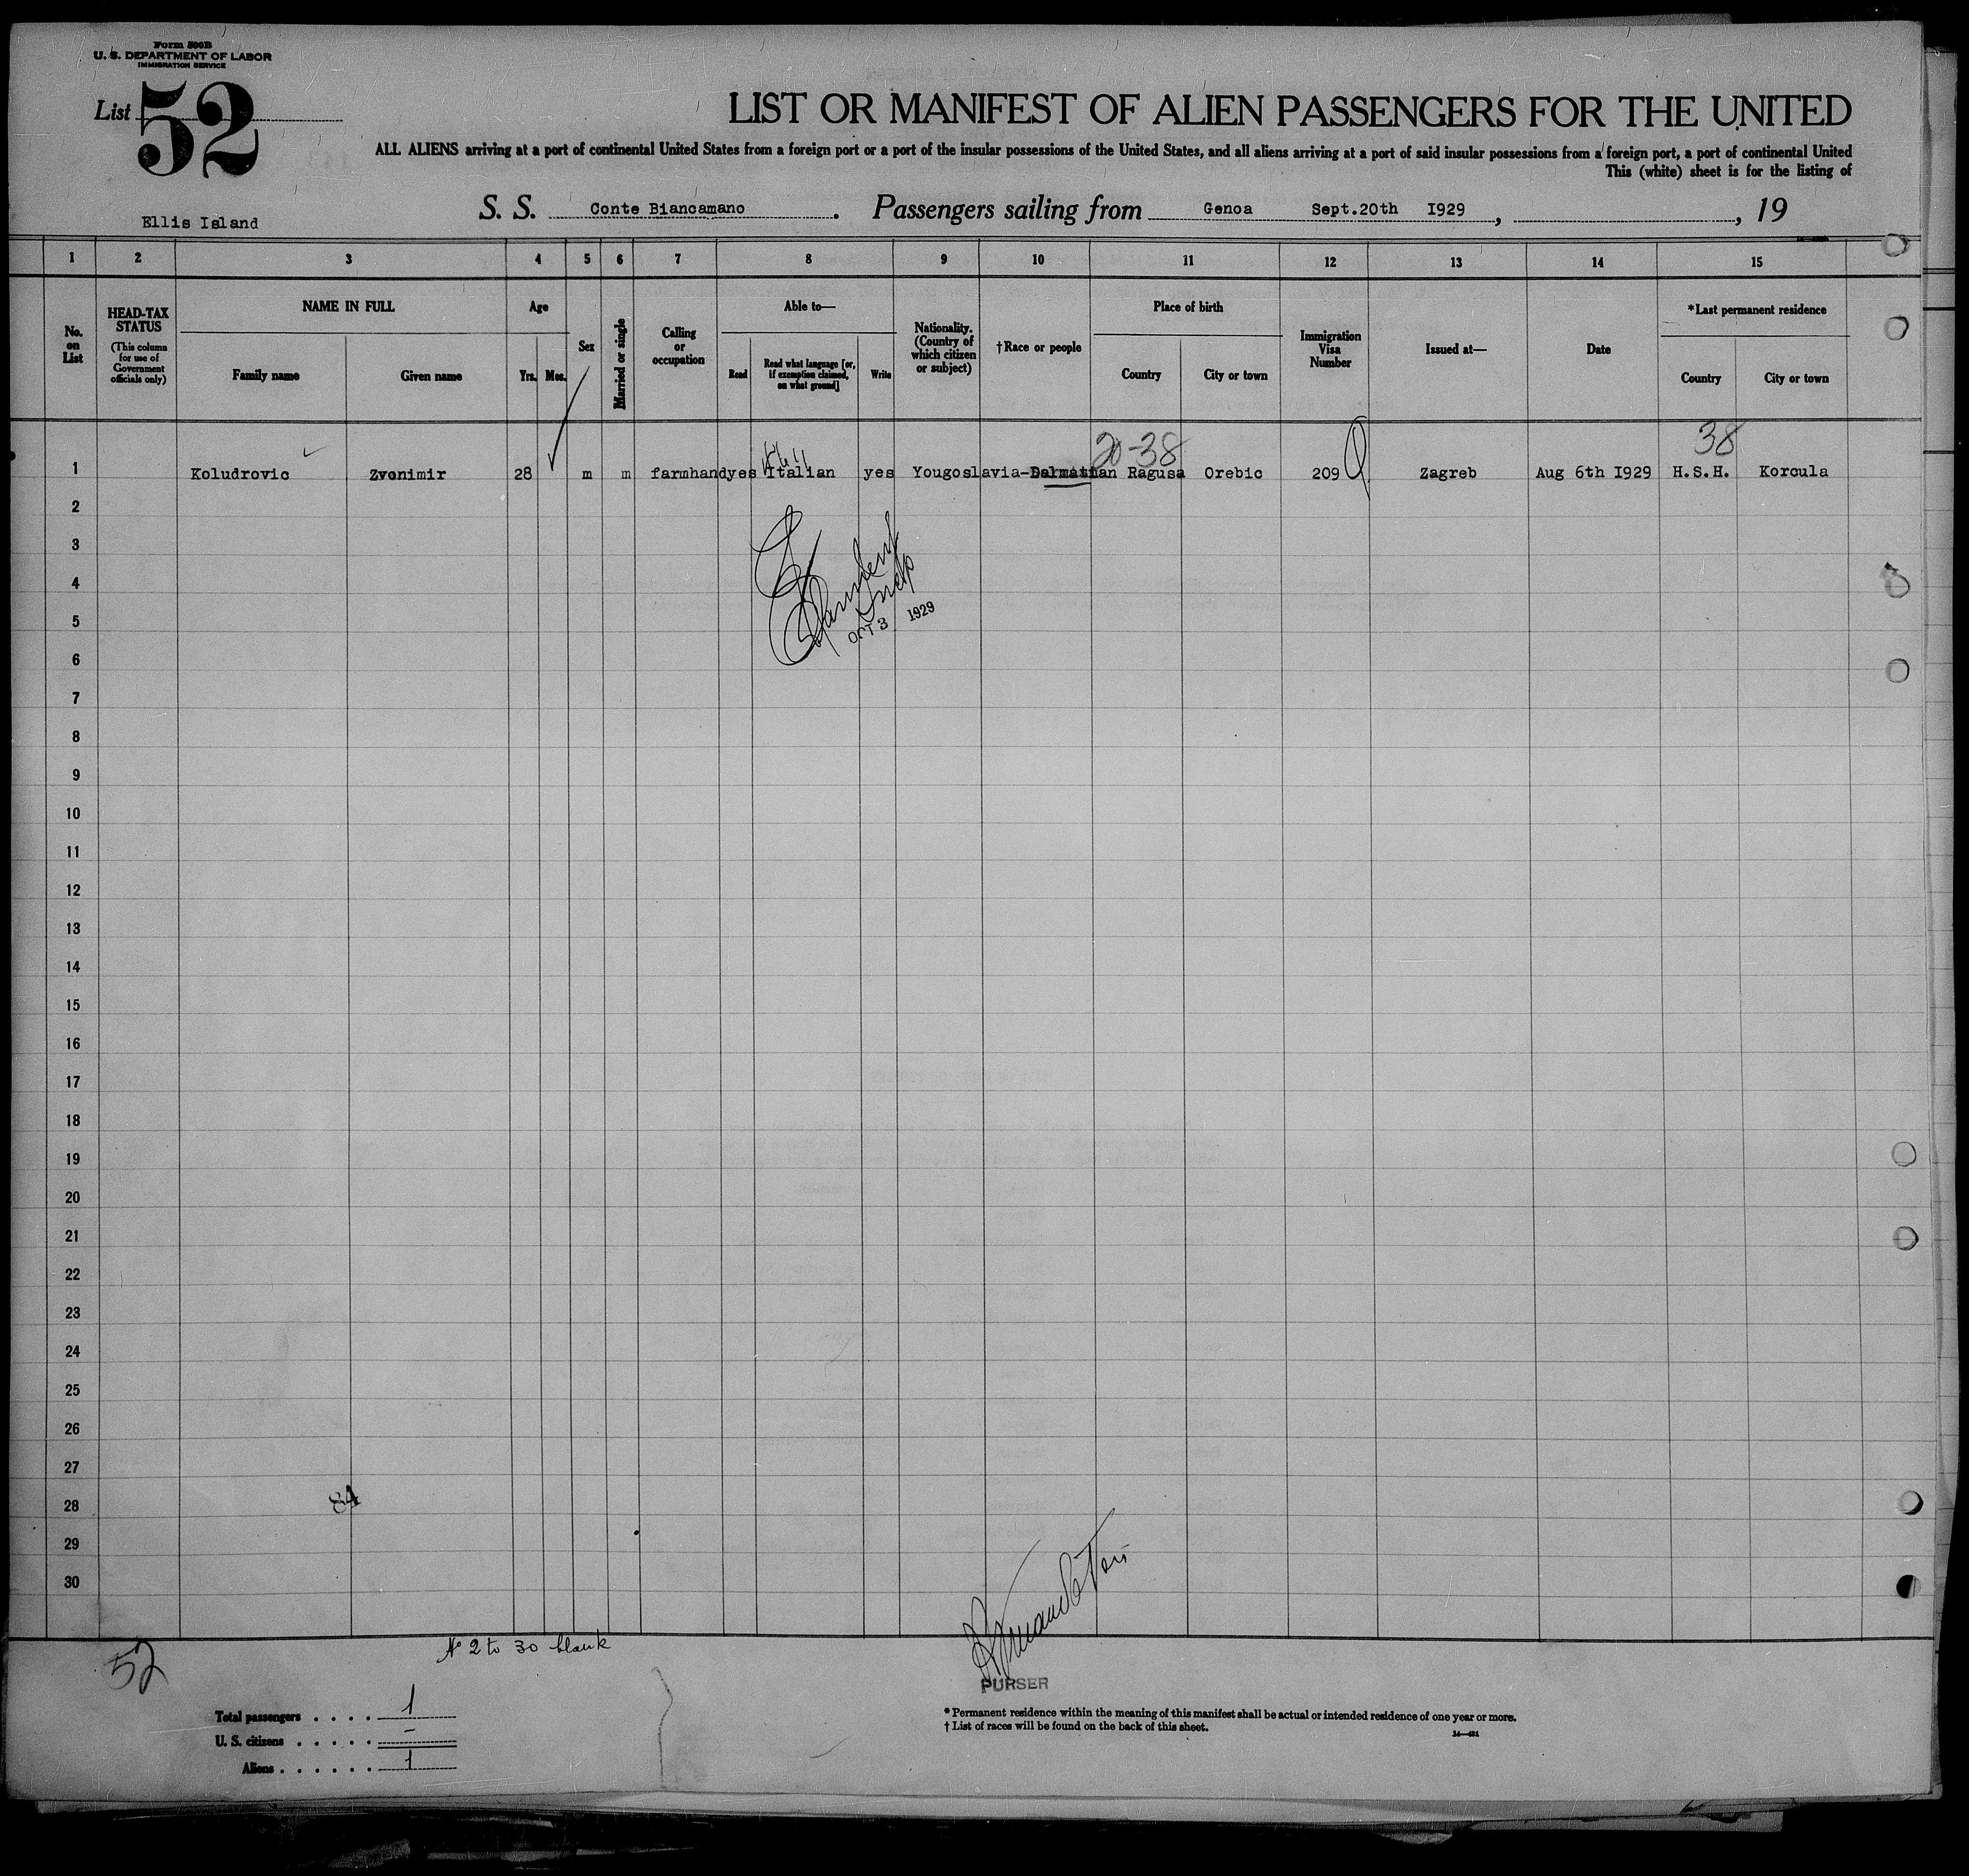 Form 500B
U. S. DEPARTMENT OF LABOR
IMMIGRATION SERVICE
List 52
LIST OR MANIFEST OF ALIEN PASSENGERS FOR THE UNITED
ALL ALIENS arriving at a port of continental United States from a foreign port or a port of the insular possessions of the United States, and all aliens arriving at a port of said insular possessions from a foreign port, a port of continental United
This (white) sheet is for the listing of
Ellis Island
S. S. Conte Biancamano. Passengers sailing from Genoa Sept.20th I929, , 19
1 2 3 4 5 6 7 8 9 10 11 12 13 14 15
No. on List
HEAD-TAX STATUS
(This column for use of Government officials only)
NAME IN FULL
Family name Given name
Age
Yrs. Mos.
Sex
Married or single
Calling or occupation
Able to—
Read
Read what language [or, if exemption claimed, on what ground]
Write
Nationality. (Country of which citizen or subject)
†Race or people
Place of birth
Country City or town
Immigration Visa Number
Issued at—
Date
*Last permanent residence
Country City or town
20-38 38
1 Koludrovic Zvonimir 28 m m farmhand yes Italian yes Yougoslavia- Ragusa Orebic 209 Zagreb Aug 6th I929 H.S.H. Korcula
2
3
4
5
OCT 3 1929
6
7
8
9
10
11
12
13
14
15
16
17
18
19
20
21
22
23
24
25
26
27
28
84
29
30
No 2 to 30 blank
52
PURSER
Total passengers . . . . 1
U. S. citizens . . . . . -
Aliens . . . . . . 1
* Permanent residence within the meaning of this manifest shall be actual or intended residence of one year or more.
† List of races will be found on the back of this sheet.